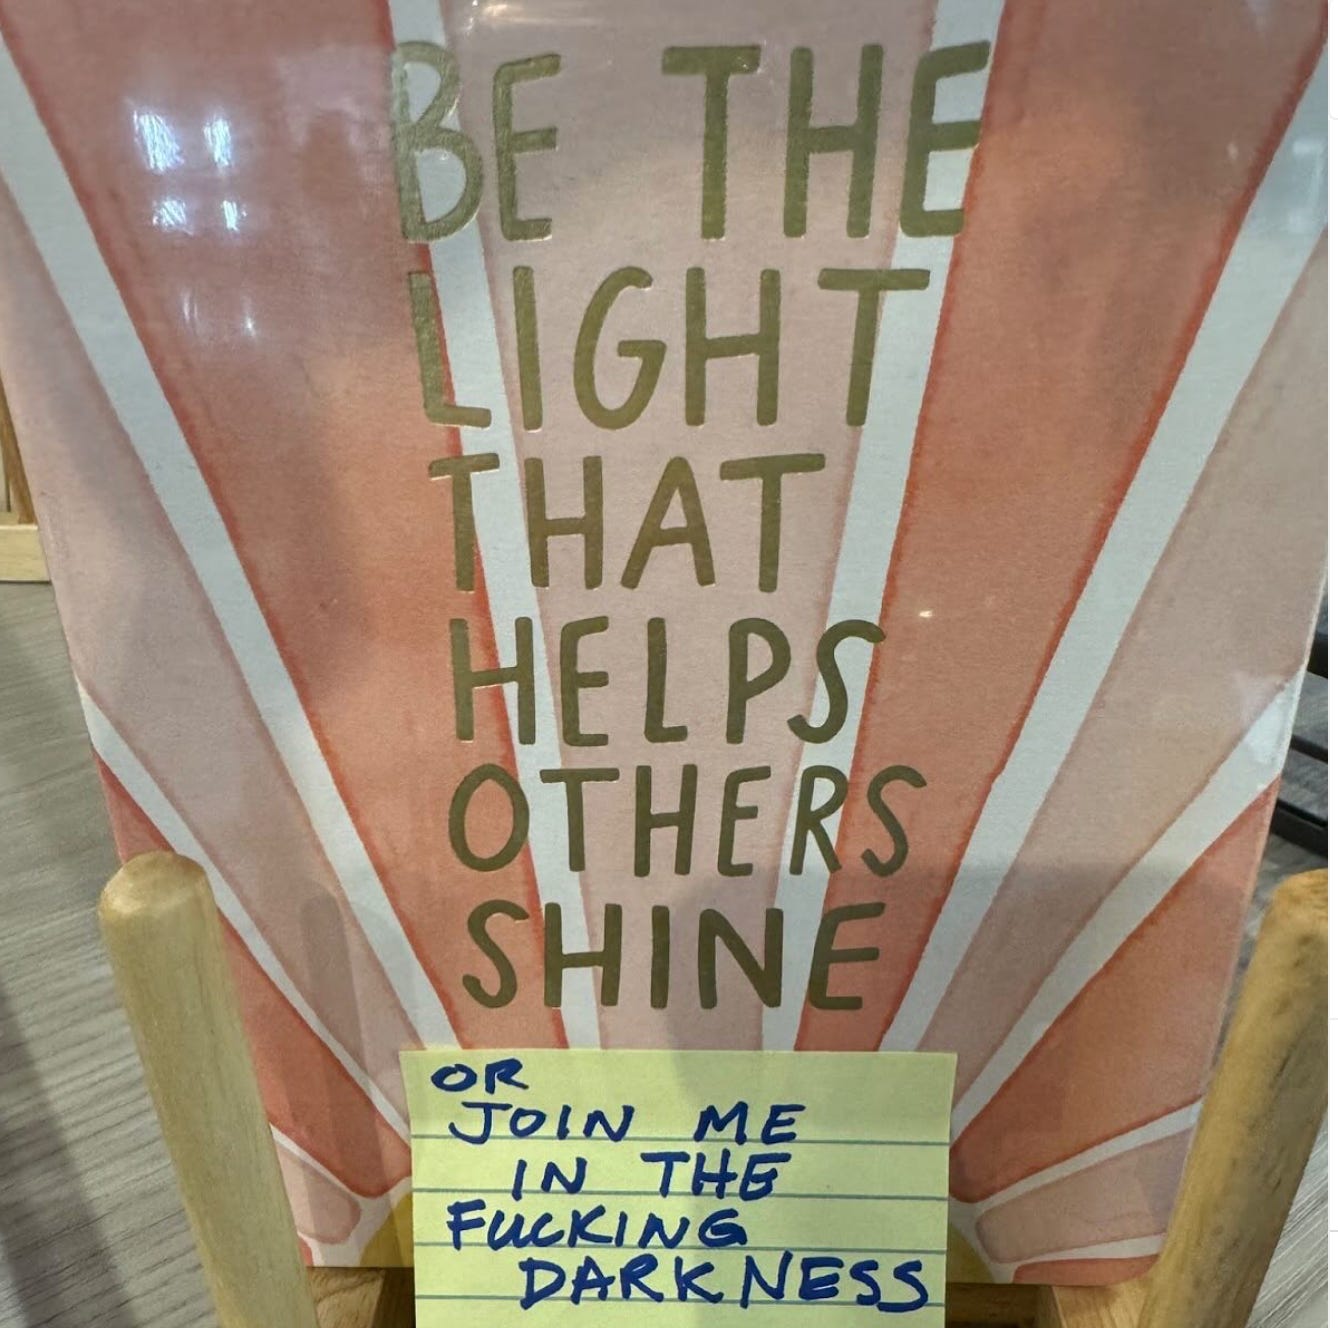 BE THE
LIGHT
THAT
HELPS
OTHERS
SHINE
OR
JOIN ME
IN THE
FUCKING
DARKNESS